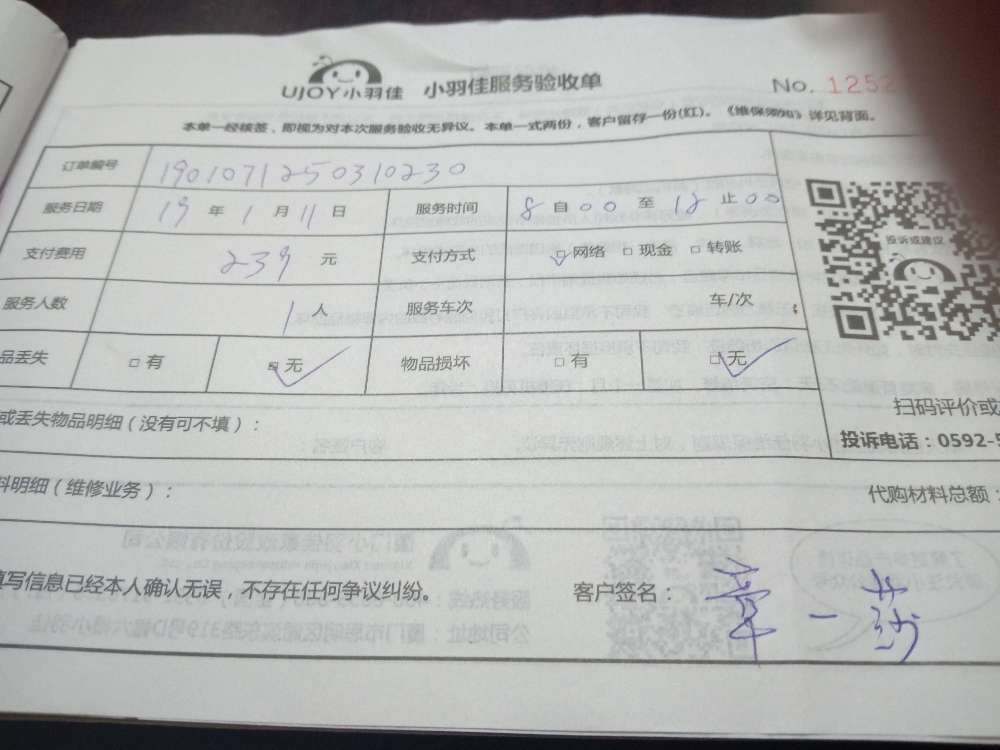 UJOY小羽佳 小羽佳服务验收单 No. 1252
本单一经核签、即视为对本次服务验收无异议。本单一式两份，客户留存一份(红)。《维保须知》详见背面。
订单编号 1901071250310230
服务日期 19 年 1 月 11 日 服务时间 8 自 00 至 12 止 00
支付费用 239 元 支付方式 ☑网络 □现金 □转账
服务人数 1 人 服务车次 车/次
品丢失 □有 ☑无 物品损坏 □有 ☑无
投诉或建议
扫码评价或
投诉电话：0592-5
或丢失物品明细（没有可不填）：
料明细（维修业务）： 代购材料总额：
填写信息已经本人确认无误，不存在任何争议纠纷。 客户签名： 章一莎